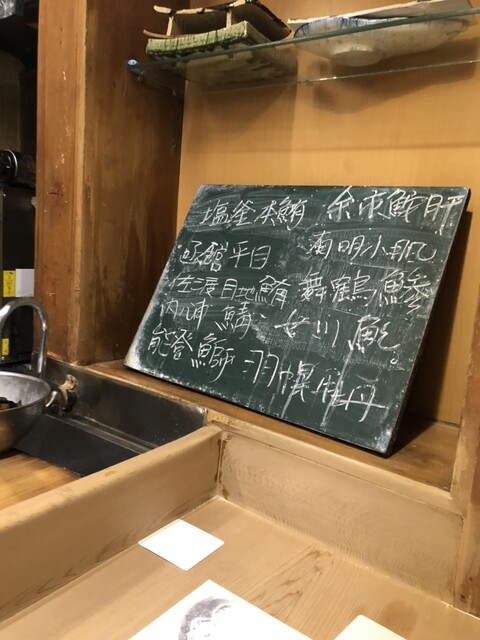 塩釜本鮪 余市鮟肝
函館平目 有明小肌
佐渡目地鮪 舞鶴鰺
内浦 鯖 女川
能登鰤 羽幌牡丹